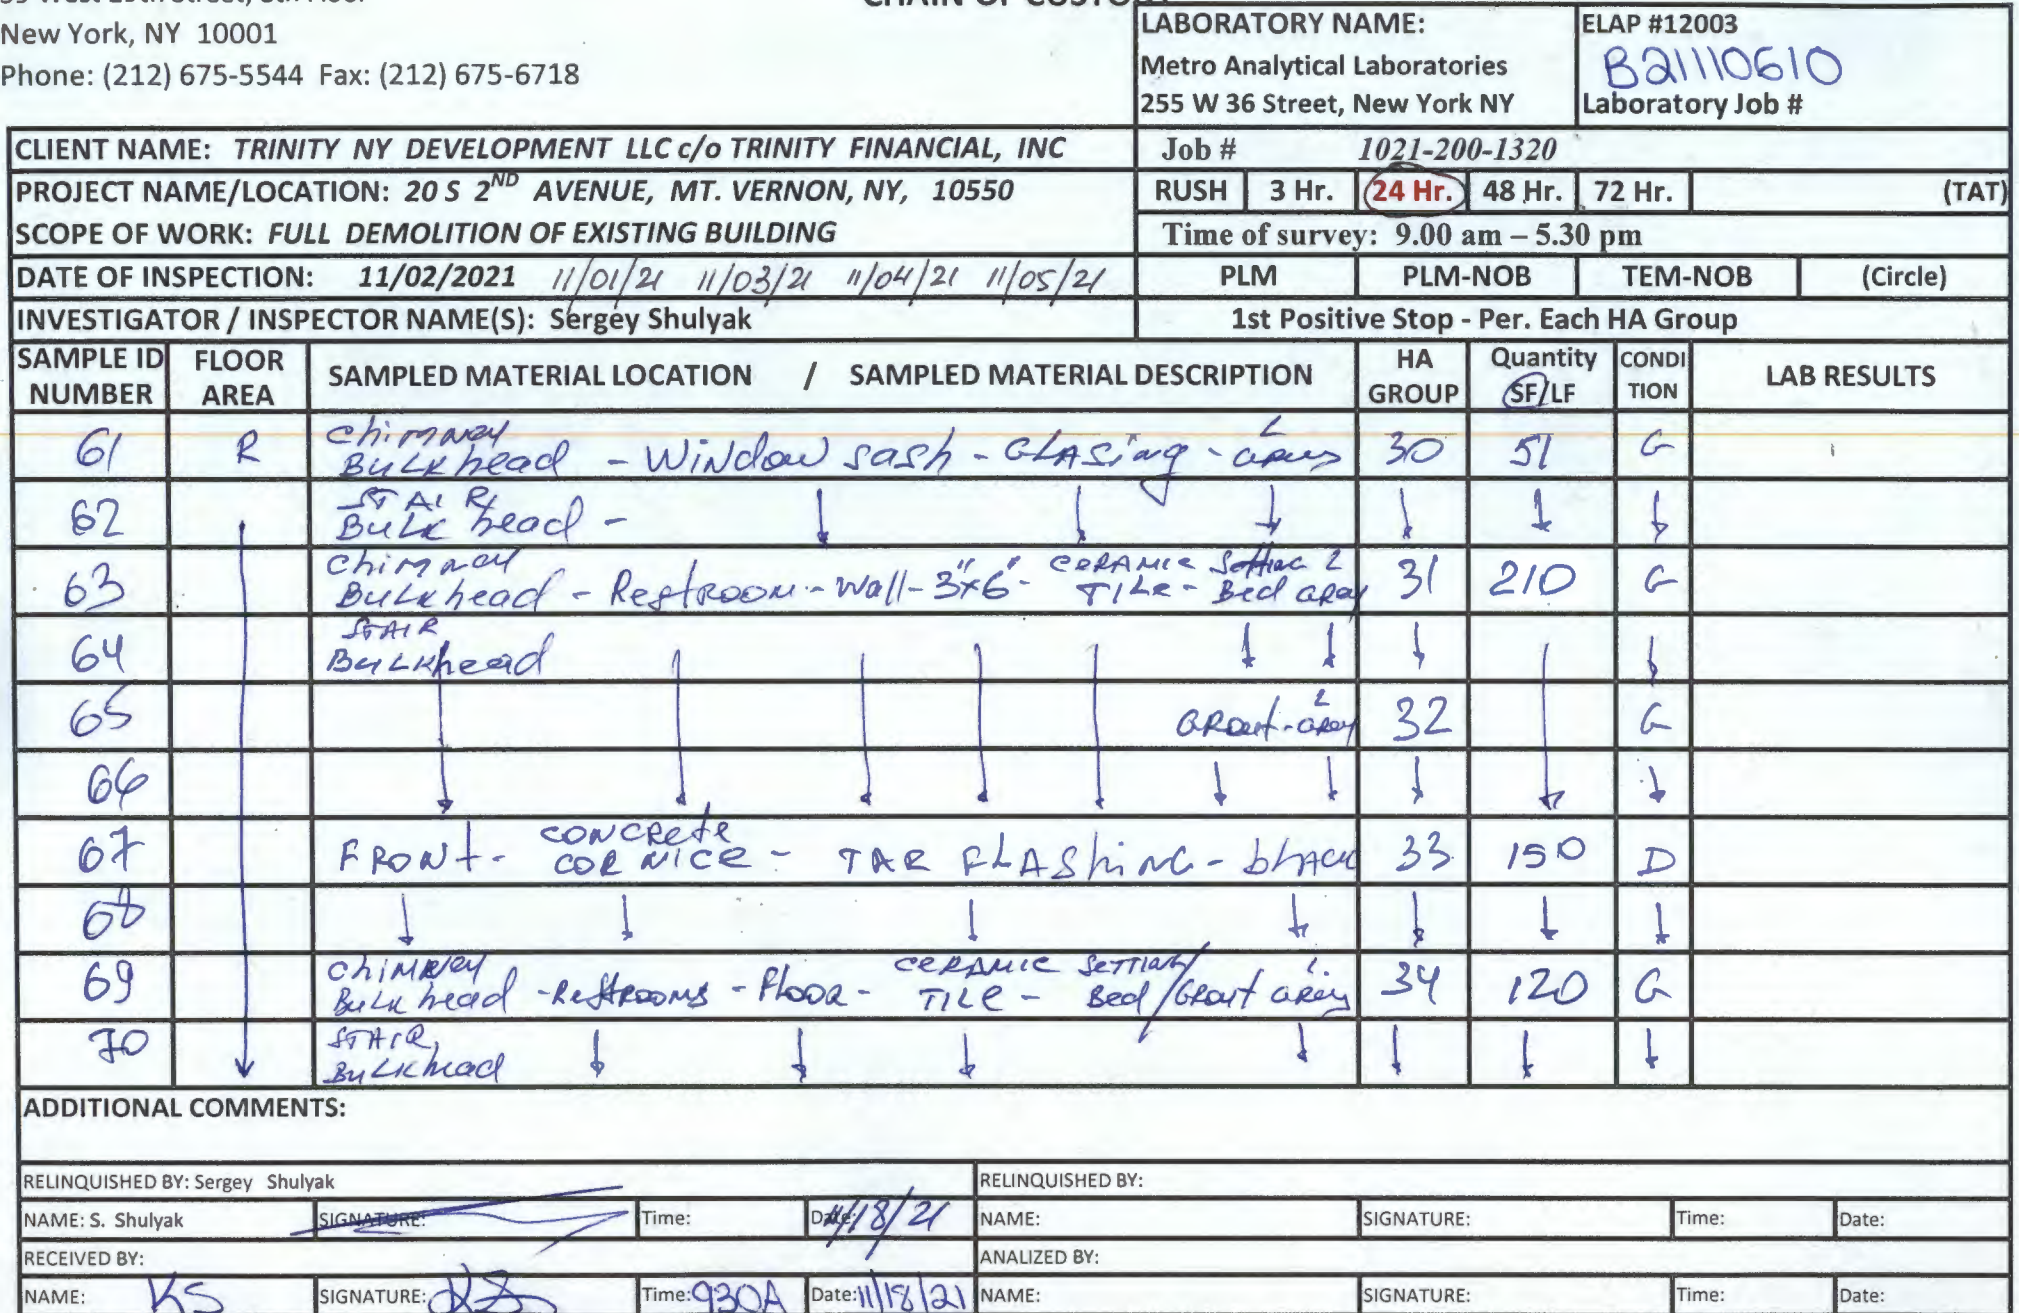 New York, NY 10001
Phone: (212) 675-5544 Fax: (212) 675-6718
LABORATORY NAME:
Metro Analytical Laboratories
255 W 36 Street, New York NY
ELAP #12003
B21110610
Laboratory Job #
CLIENT NAME: TRINITY NY DEVELOPMENT LLC c/o TRINITY FINANCIAL, INC
Job # 1021-200-1320
PROJECT NAME/LOCATION: 20 S 2ND AVENUE, MT. VERNON, NY, 10550
RUSH 3 Hr. 24 Hr. 48 Hr. 72 Hr. (TAT)
SCOPE OF WORK: FULL DEMOLITION OF EXISTING BUILDING
Time of survey: 9.00 am – 5.30 pm
DATE OF INSPECTION: 11/02/2021 11/01/21 11/03/21 11/04/21 11/05/21
PLM PLM-NOB TEM-NOB (Circle)
INVESTIGATOR / INSPECTOR NAME(S): Sergey Shulyak
1st Positive Stop - Per. Each HA Group
SAMPLE ID NUMBER
FLOOR AREA
SAMPLED MATERIAL LOCATION / SAMPLED MATERIAL DESCRIPTION
HA GROUP
Quantity SF/LF
CONDI TION
LAB RESULTS
61 R Chimney Bulkhead - Window sash - GLASing - 30 51 G
62 STAIR Bulkhead -
63 Chimney Bulkhead - Restroom - Wall - 3"x6" - CERAMIC TILE - Setting Bed 31 210 G
64 STAIR Bulkhead
65 GRout - 32 G
66
67 FRONT - CONCRete CORNICE - TAR FLAShiNG - bLACK 33 150 D
68
69 Chimney Bulkhead - RestRooms - FLooR - CERAMIC TILE - Setting Bed / GRout 34 120 G
70 STAIR Bulkhead
ADDITIONAL COMMENTS:
RELINQUISHED BY: Sergey Shulyak
RELINQUISHED BY:
NAME: S. Shulyak SIGNATURE: Time: Date: 11/18/21
NAME: SIGNATURE: Time: Date:
RECEIVED BY:
ANALIZED BY:
NAME: KS SIGNATURE: KS Time: 930A Date: 11/18/21
NAME: SIGNATURE: Time: Date: